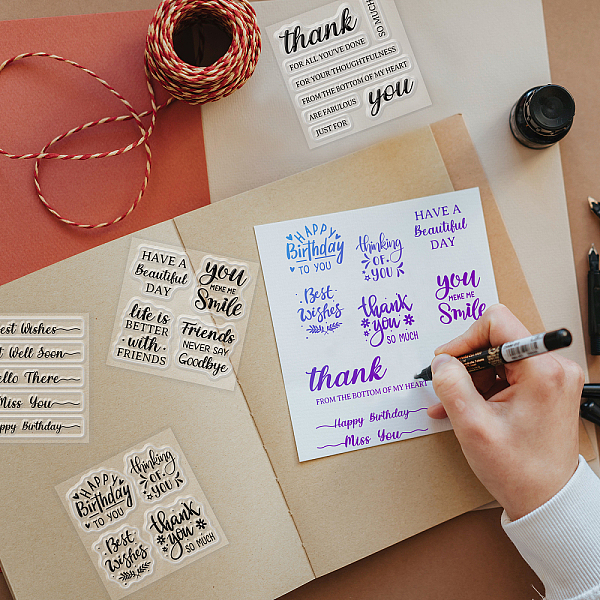 thank
SO MUCH
FOR ALL YOU'VE DONE
FOR YOUR THOUGHTFULNESS
FROM THE BOTTOM OF MY HEART
ARE FABULOUS
you
JUST FOR
HAVE A
Beautiful
DAY
you
MEKE ME
Smile
life is
BETTER
with
FRIENDS
Friends
NEVER SAY
Goodbye
est Wishes
t Well Soon
ello There
Miss You
appy Birthday
HAPPY
Birthday
TO YOU
thinking
OF
YOU
Best
WISHES
thank
you
SO MUCH
HAPPY
Birthday
TO YOU
thinking
OF
YOU
HAVE A
Beautiful
DAY
Best
WISHES
thank
you
SO MUCH
you
MEKE ME
Smile
thank
FROM THE BOTTOM OF MY HEART
Happy Birthday
Miss You